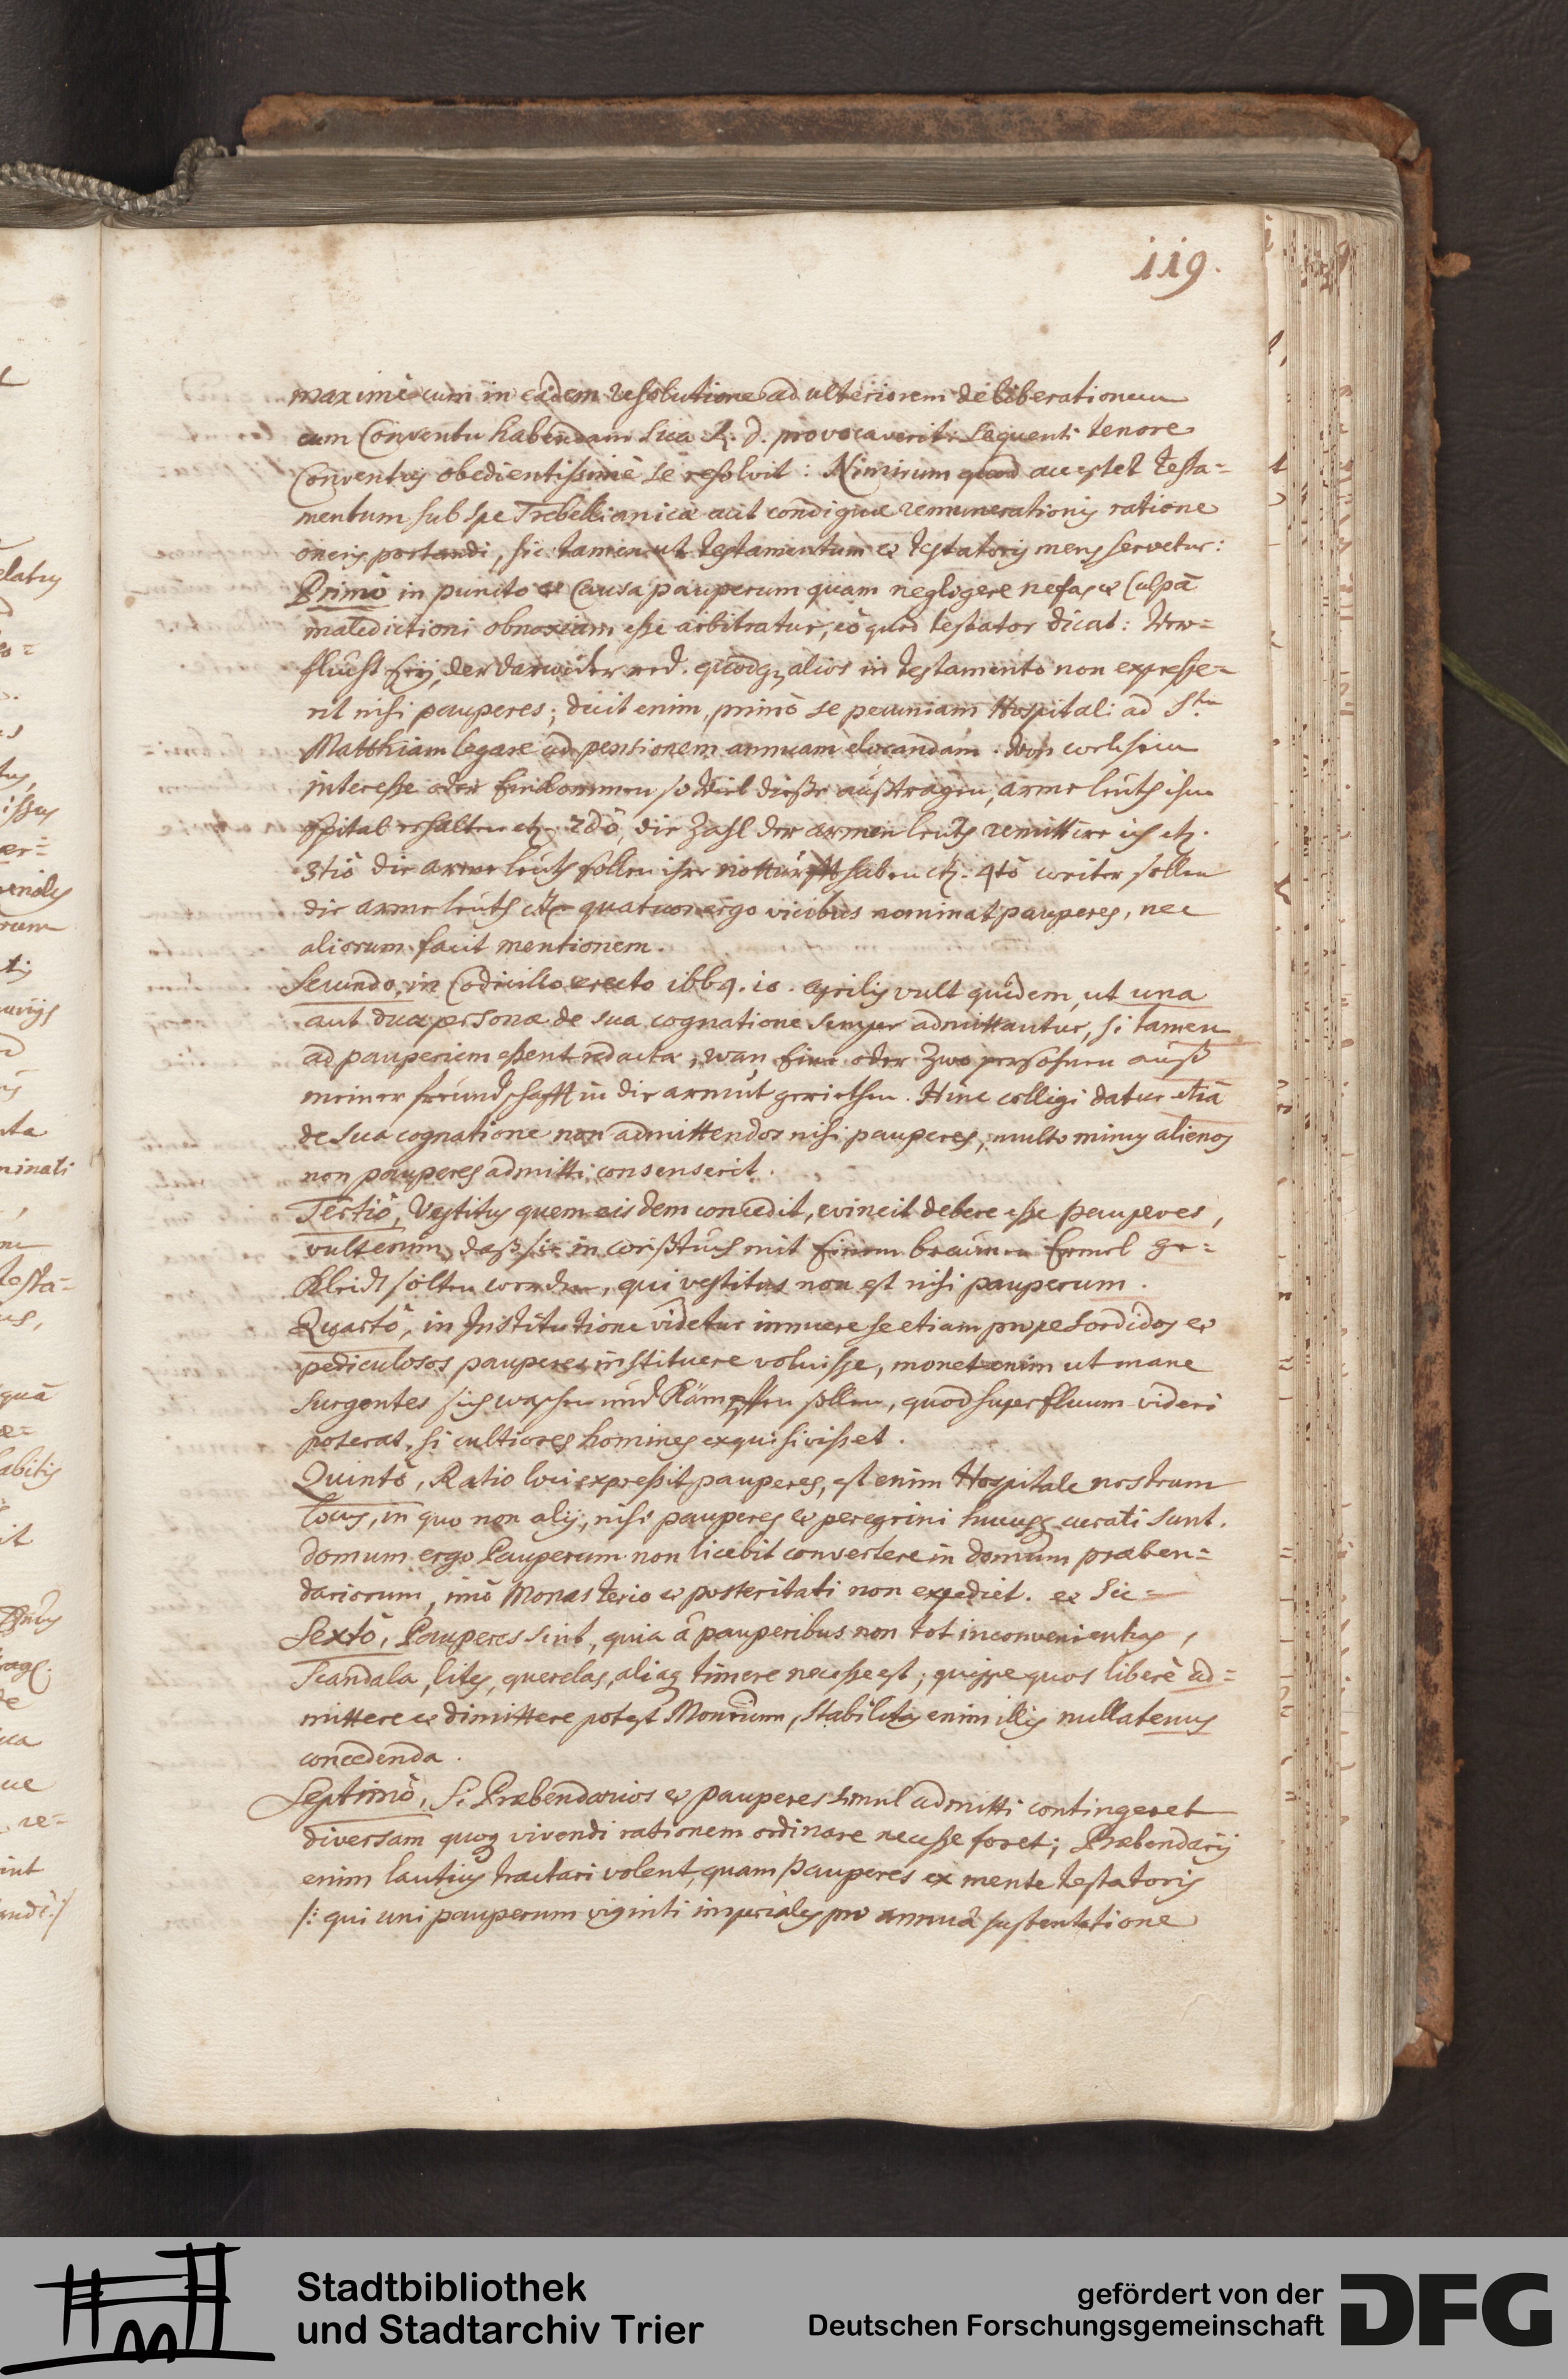 119.
maximè cum in eadem resolutione ad ulteriorem deliberationem
cum Conventu habendam sua R. d. provocaverit: sequenti tenore
Conventus obedientissimè se resolvit: Nimirum quod acceptet testa=
mentum sub spe Trebellianicæ aut condignæ remunerationis ratione
oneris portandi, sic tamen ut testamentum et testatoris mens servetur:
Primò in puncto et Causa pauperum quam negligere nefas et Culpâ
maledictioni obnoxiam esse arbitratur, eò quod testator dicat: Ver=
flucht seij, der darwider red. quodq; alios in testamento non expresse=
rit nisi pauperes; dicit enim, primò se pecuniam Hospitali ad Stum
Matthiam legare ad pensionem annuam elocandam. Von welchem
interesse oder Einkommen so viel dieße außtragen, arme leuth ihm
spital erhalten etc. 2dò, die Zahl der armen leuth remittire ich etc.
3tiò die arme leuth sollen ihre notturfft haben etc. 4tò weiter sollen
die arme leuth etc quatuor ergo vicibus nominat pauperes, nec
aliorum facit mentionem.
Secundo, in Codicillo erecto 1669. 10. Aprilis vult quidem, ut una
aut duæ personæ de sua cognatione semper admittantur, si tamen
ad pauperiem essent redactæ, wan Eine oder Zwo persohnen auß
meiner freundschafft in die armut geriethen. Hinc colligi datur etiã
de sua cognatione non admittendos nisi pauperes, multo minus alienos
non pauperes admitti consenserit.
Tertiò, Vestitus quem eisdem concedit, evincit debere esse pauperes,
vult enim, daß sie in weißtuch mit Einem braunen Ermel ge=
Kleidt solten werden, qui vestitus non est nisi pauperum.
Quartò, in Institutione videtur innuere se etiam prope sordidos et
pediculosos pauperes instituere voluisse, monet enim ut mane
surgentes sich waschen und Kämpffen sollen, quod superfluum videri
poterat, si cultiores homines exquisivisset.
Quintò, Ratio loci expressit pauperes, est enim Hospitale nostrum
locus, in quo non alij, nisi pauperes et peregrini hucusq; curati sunt.
domum ergo Pauperum non licebit convertere in domum præben=
dariorum, imò Monasterio et posteritati non expediet. et sic=
Sextò, Pauperes sint, quia â pauperibus non tot inconvenientias,
scandala, lites, querelas, aliaq; timere necesse est; quippe quos liberè ad=
mittere et dimittere potest Monrium, stabilitas enim illis nullatenus
concedenda.
Septimò, Si Præbendarios et pauperes simul admitti contingeret
diversam quoq; vivendi rationem ordinare necesse foret; Præbendarij
enim lautius tractari volent, quam pauperes ex mente testatoris
/: qui uni pauperum viginti imperiales pro annuâ sustentatione
Stadtbibliothek
und Stadtarchiv Trier
gefördert von der
Deutschen Forschungsgemeinschaft
DFG